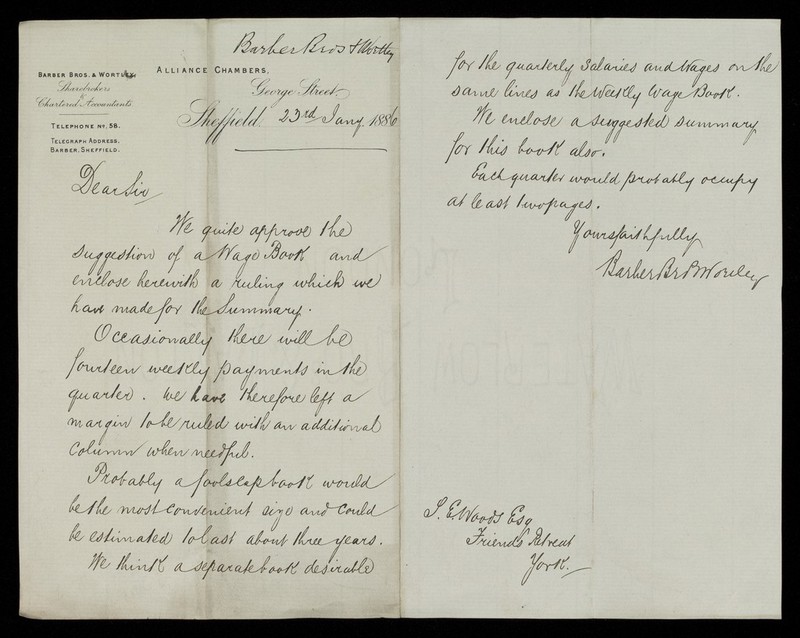 Barber Bros & Wortley
BARBER BROS. & WORTLEY.
Sharebrokers
&
Chartered Accountants.
TELEPHONE No. 58.
TELEGRAPH ADDRESS.
BARBER, SHEFFIELD.
ALLIANCE CHAMBERS,
George Street
Sheffield 23rd Jany. 1886
Dear Sir
We quite approve the
suggestion of a Wage Book and
enclose herewith a ruling which we
have made for the Summary.
Occasionally there will be
fourteen weekly payments in the
quarter. We have therefore left a
margin to be ruled with an additional
column when needful.
Probably a foolscap book would
be the most convenient size and could
be estimated to last about three years.
We think a separate book desirable
for the quarterly Salaries and Wages on the
same lines as the Weekly Wage Book.
We enclose a suggested summary
for this book also.
Each quarter would probably occupy
at least two pages.
Yours faithfully
Barber Bros & Wortley
S. E. Woods Esq
Friends Retreat
York.